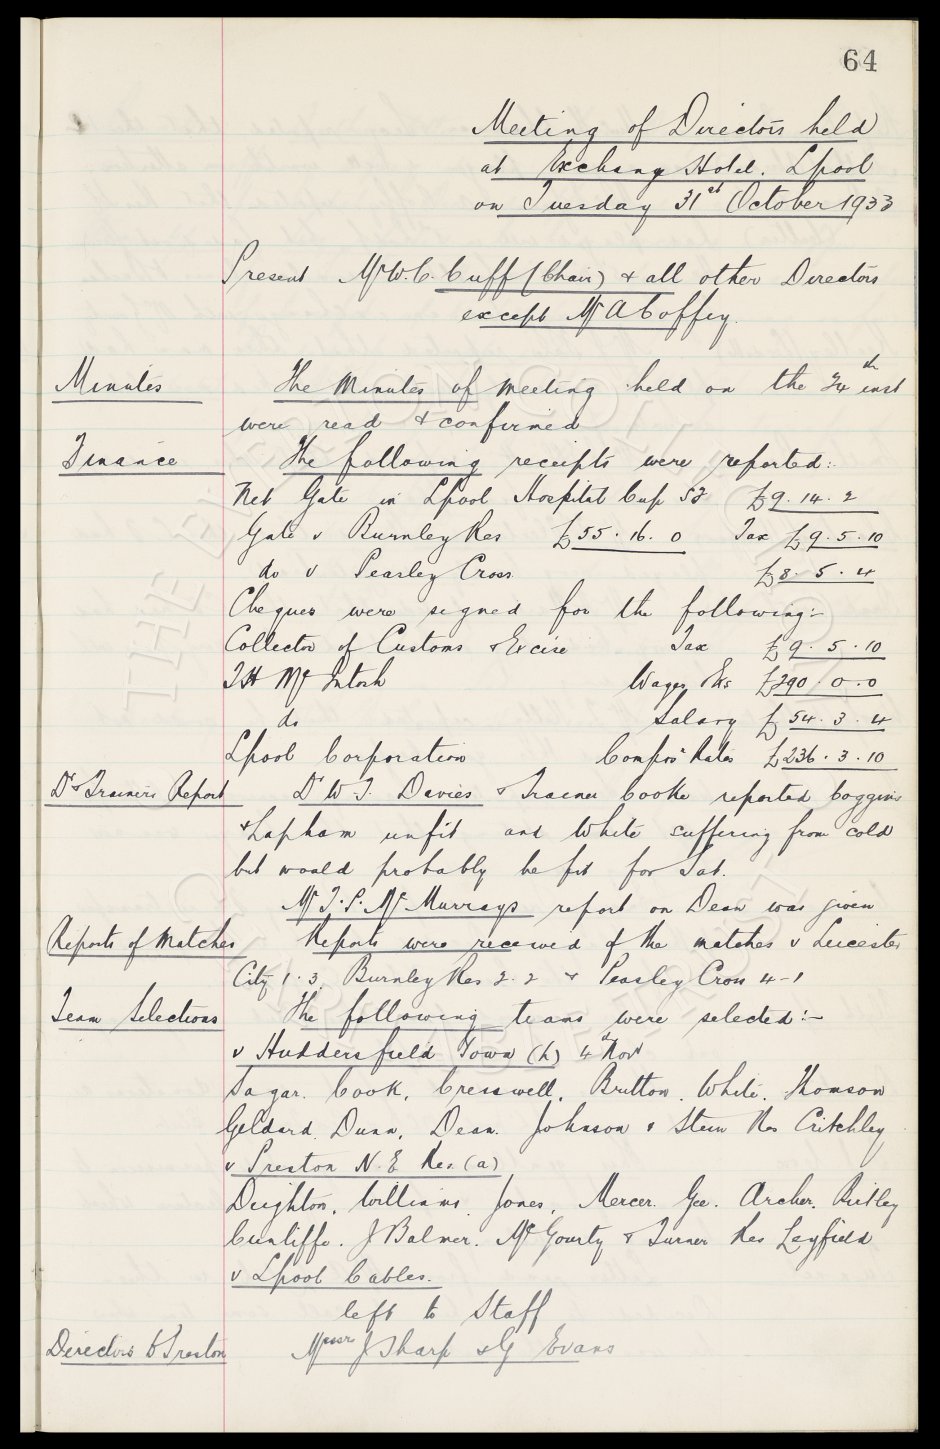 64
Meeting of Directors held
at Exchange Hotel. Lpool
on Tuesday 31st October 1933
Present Mr W.C. Cuff (Chair) & all other Directors
except Mr A Coffey.
Minutes The Minutes of meeting held on the 24th inst
were read & confirmed
Finance The following receipts were reported:-
Net Gate in Lpool Hospital Cup SF £9.14.2
Gate v Burnley Res £55.16.0 Tax £9.5.10
do v Peasley Cross £8.5.4
Cheques were signed for the following:-
Collector of Customs & Excise Tax £9.5.10
T H McIntosh Wages Etc £290.0.0
do Salary £54.3.4
Lpool Corporation Compos Rates £236.3.10
Dr & Trainers Report Dr W.J. Davies & Trainer Cooke reported Coggins
& Lapham unfit and White suffering from cold
but would probably be fit for Sat.
Mr T.P. McMurrays report on Dean was given
Reports of Matches Reports were received of the matches v Leicester
City 1.3, Burnley Res 2.2 & Peasley Cross 4-1
Team Selections The following teams were selected:-
v Huddersfield Town (h) 4th Nov
Sagar. Cook, Cresswell, Britton. White. Thomson
Geldard. Dunn, Dean. Johnson & Stein Res Critchley
v Preston N.E Res. (a)
Deighton, Williams. Jones, Mercer. Gee. Archer. Ritley
Cunliffe. J Balmer. McGourty & Turner Res Leyfield
v Lpool Cables.
left to Staff
Directors to Preston Messrs J Sharp & G Evans